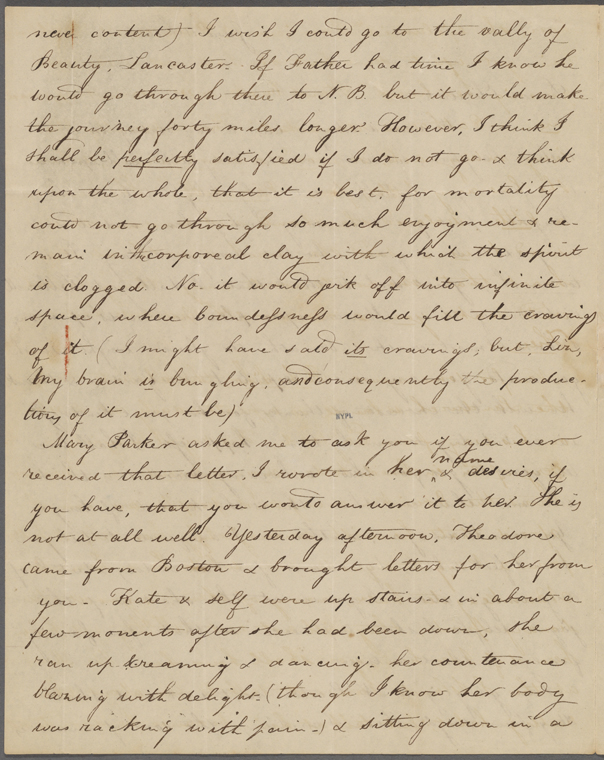 never content) I wish I could go to the vally of
Beauty, Lancaster. If Father had time I know he
would go through there to N.B. but it would make
the journey forty miles longer. However, I think I
shall be perfectly satisfied if I do not go - & think
upon the whole, that it is best, for mortality
could not go through so much enjoyment & re-
main in the corporeal clay with which the spirit
is clogged. No - it would jerk off into infinite
space, where boundessness would fill the craving
of it. (I might have said its cravings; but,
my brain is bungling, and consequently the produc-
tions of it must be)
NYPL
Mary Parker asked me to ask you if you ever
received that letter, I wrote in her name & desires, if
you have, that you would answer it to her. She is
not at all well. Yesterday afternoon, Theodore
came from Boston & brought letters for her from
you - Kate & self were up stairs - & in about a
few moments after she had been down, she
ran up screaming & dancing - her countenance
blazing with delight - (though I know her body
was racking with pain -) & sitting down in a